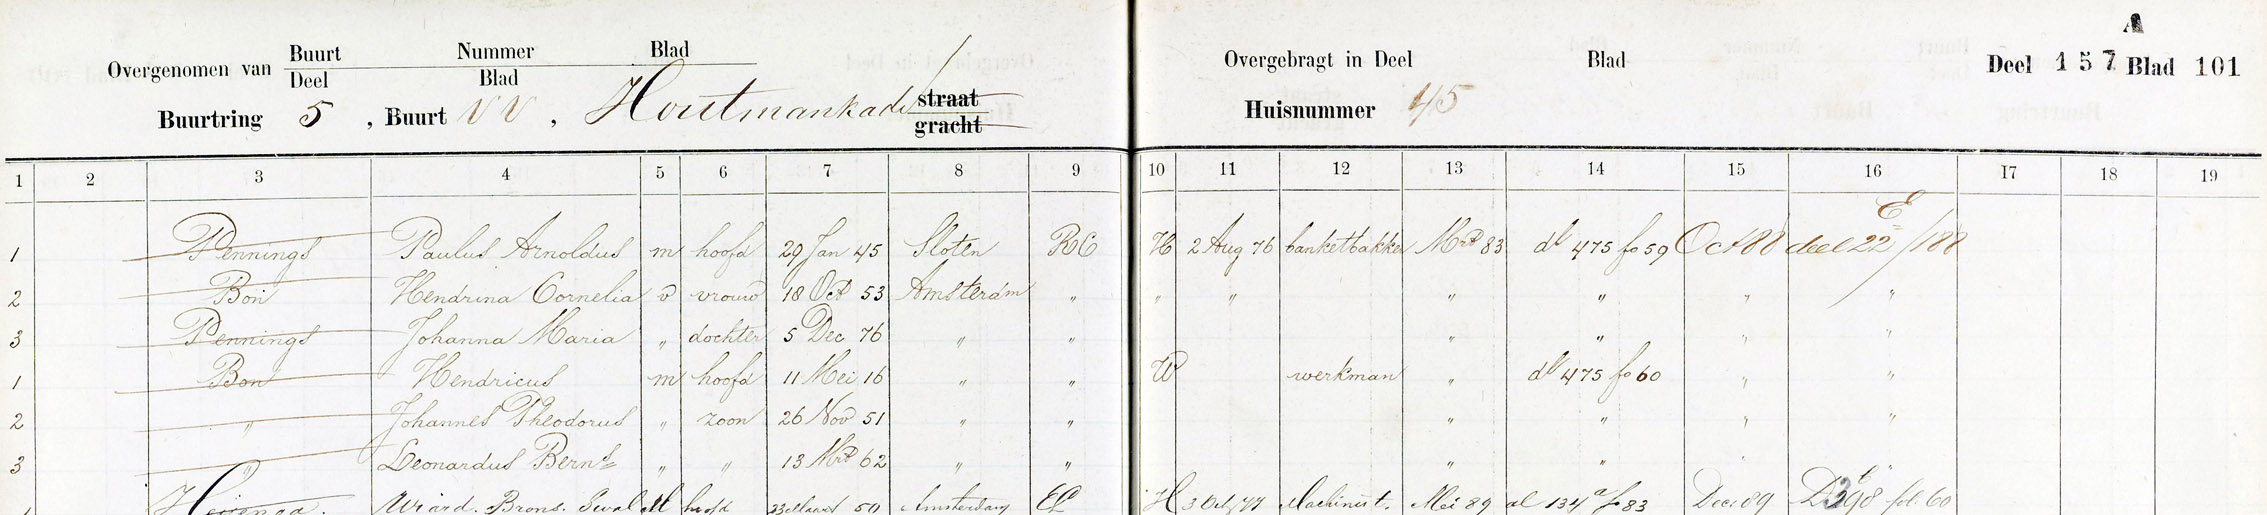 A
Overgenomen van Buurt Nummer Blad
Deel Blad
Overgebragt in Deel Blad
Deel 157 Blad 101
Buurtring 5, Buurt VV, Houtmankade straat gracht
Huisnummer 45
1 2 3 4 5 6 7 8 9 10 11 12 13 14 15 16 17 18 19
1 Pennings Paulus Arnoldus m hoofd 29 Jan 45 Sloten RC H 2 Aug 76 banketbakker Mrt 83 dl 475 fo 59 Oct 88 deel 22 E/188
2 Bon Hendrina Cornelia v vrouw 18 Oct 53 Amsterdam " " " " " " "
3 Pennings Johanna Maria " dochter 5 Dec 76 " " " " " "
1 Bon Hendricus m hoofd 11 Mei 16 " " W werkman " dl 475 fo 60 " "
2 " Johannes Theodorus " zoon 26 Nov 51 " " " " " "
3 " Leonardus Berns " " 13 Mrt 62 " " " " " "
1 Wiard. Brons. M hoofd Maart 50 Amsterdam H 3 77 Machinist. Mei 89 dl 134 a f 83 Dec. 89 fol. 60